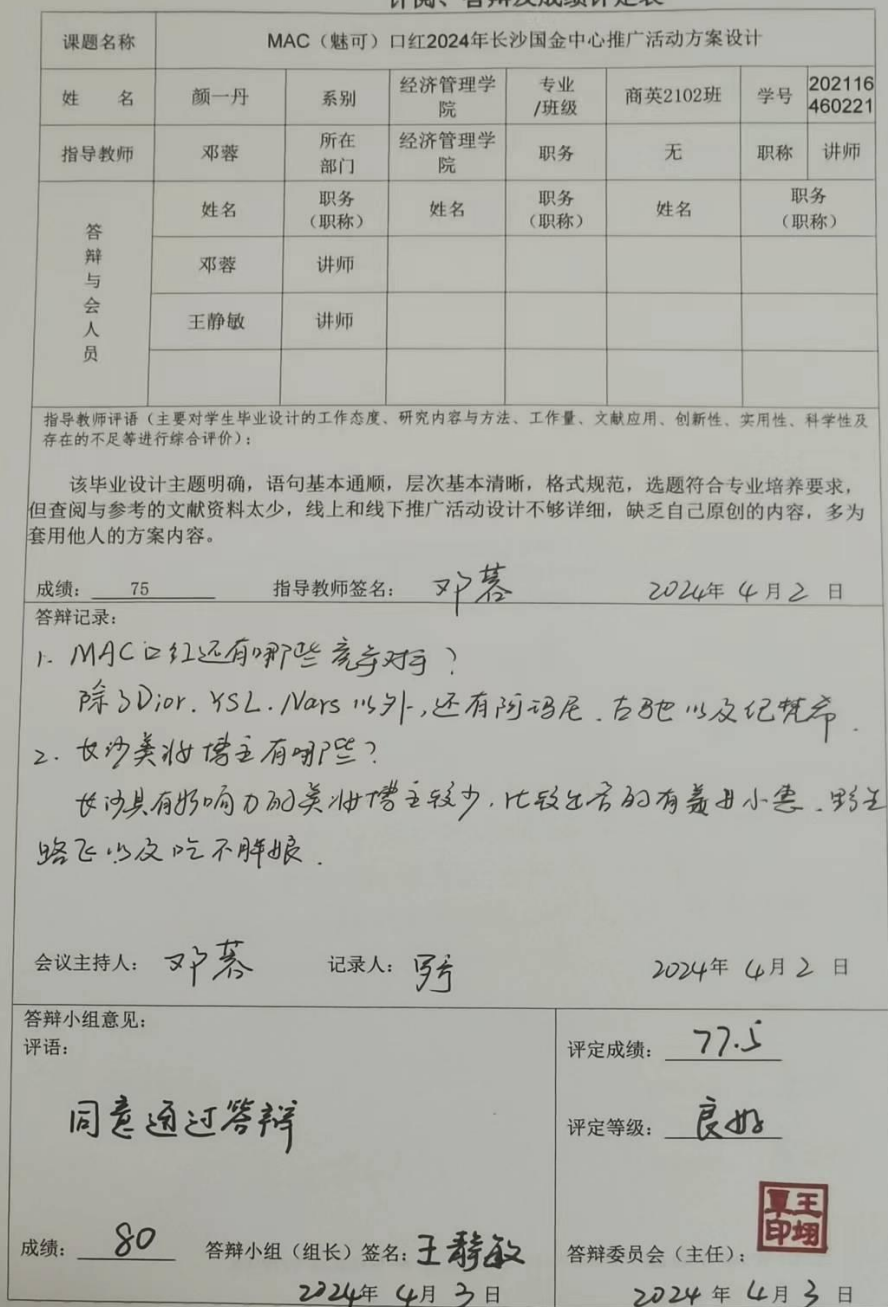 评阅、答辩及成绩评定表
课题名称 MAC（魅可）口红2024年长沙国金中心推广活动方案设计
姓 名 颜一丹 系别 经济管理学院 专业/班级 商英2102班 学号 202116460221
指导教师 邓蓉 所在部门 经济管理学院 职务 无 职称 讲师
答辩与会人员 姓名 职务（职称） 姓名 职务（职称） 姓名 职务（职称）
邓蓉 讲师
王静敏 讲师
指导教师评语（主要对学生毕业设计的工作态度、研究内容与方法、工作量、文献应用、创新性、实用性、科学性及
存在的不足等进行综合评价）：
该毕业设计主题明确，语句基本通顺，层次基本清晰，格式规范，选题符合专业培养要求，
但查阅与参考的文献资料太少，线上和线下推广活动设计不够详细，缺乏自己原创的内容，多为
套用他人的方案内容。
成绩： 75 指导教师签名： 邓蓉 2024年 4月 2 日
答辩记录：
1. MAC口红还有哪些竞争对手？
除了Dior. YSL. Nars 以外，还有阿玛尼、古驰以及纪梵希.
2. 长沙美妆博主有哪些？
长沙具有影响力的美妆博主较少，比较出名的有小惠、野生
路飞以及吃不胖娘.
会议主持人： 邓蓉 记录人： 2024年 4月 2 日
答辩小组意见：
评语：
同意通过答辩
成绩： 80 答辩小组（组长）签名：王静敏
2024年 4月 3日
评定成绩： 77.5
评定等级： 良好
答辩委员会（主任）：
王翊覃印
2024 年 4月 3 日